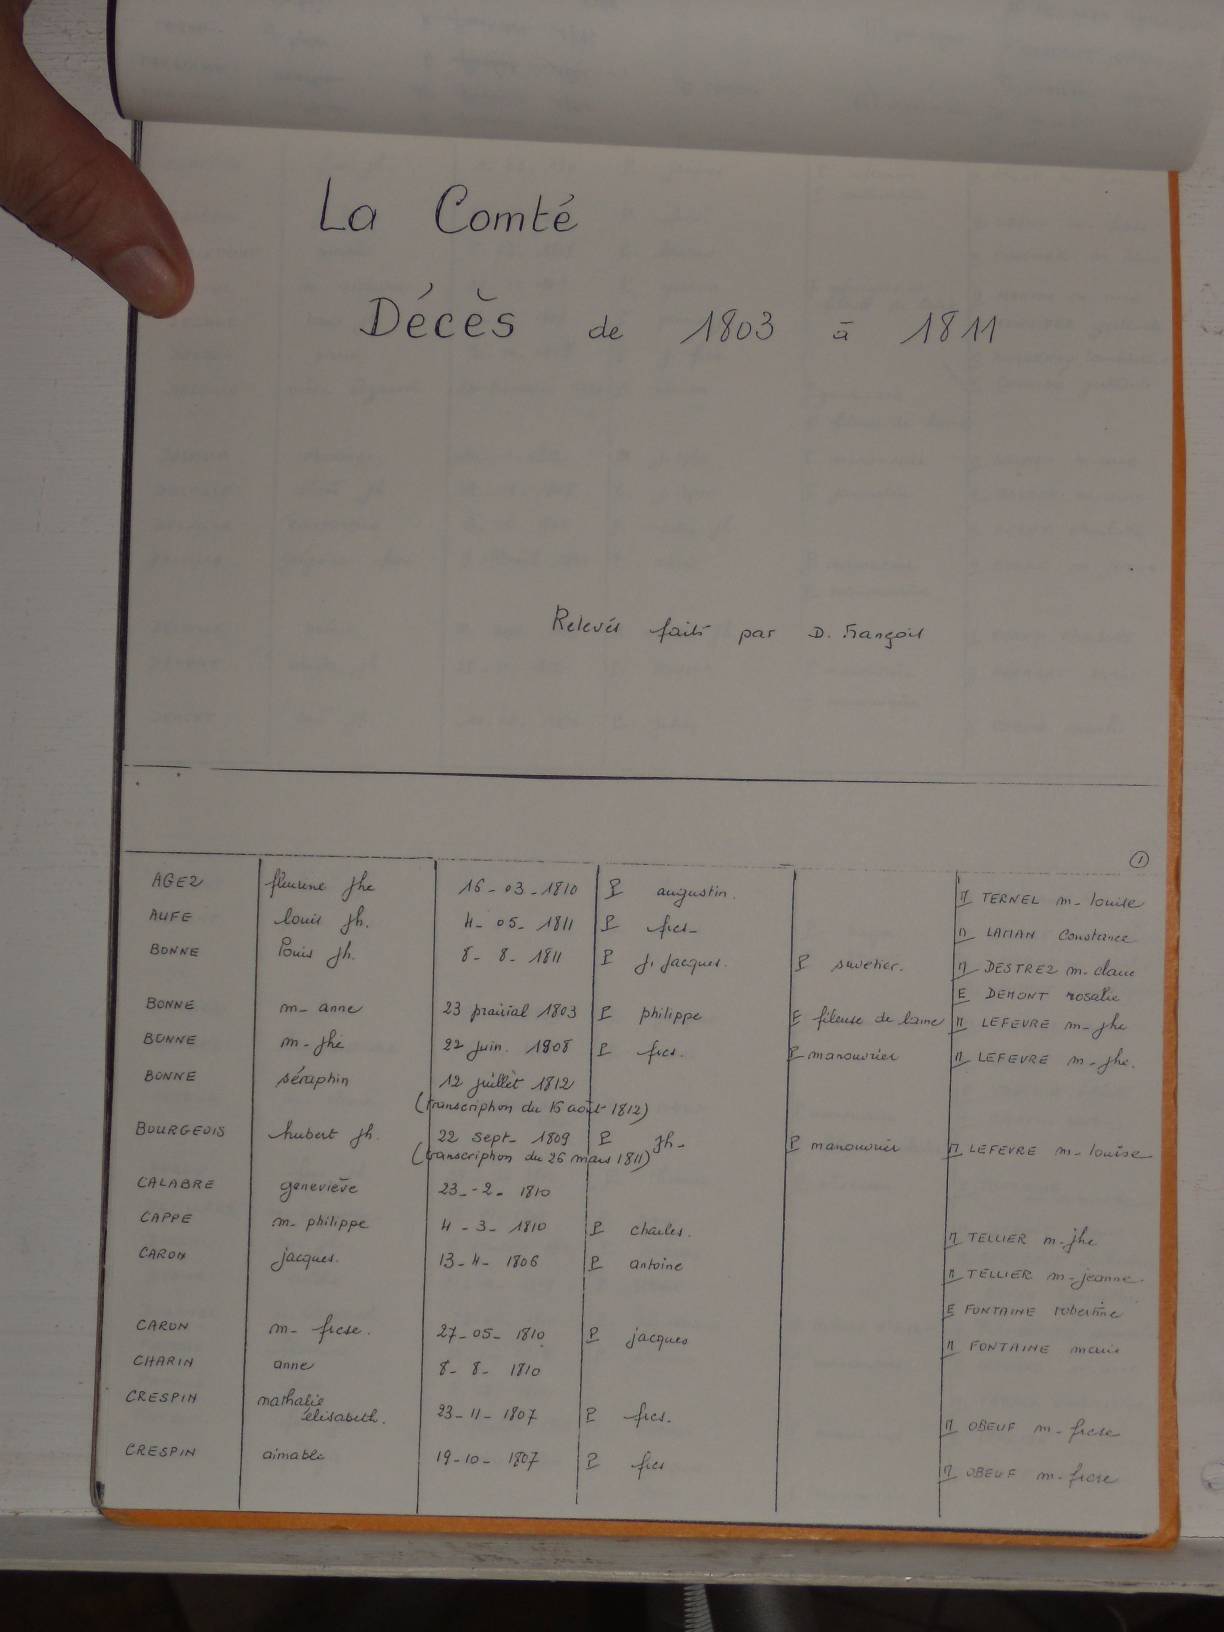 La Comté
Décès de 1803 à 1811
Relevés faits par D. François
1
AGEZ fleurine jhe 16-03-1810 P augustin. M TERNEL m-louise
AUFE louis jh. 4-05-1811 P frcs- M LAMAN Constance
BONNE louis jh. 8-8-1811 P j. jacques. P savetier. M DESTREZ m. claire
E DEMONT rosalie
BONNE m-anne 23 prairial 1803 P philippe E fileuse de laine M LEFEVRE m-jhe
BONNE m-jhe 22 juin. 1908 P frcs. P manouvrier M LEFEVRE m-jhe.
BONNE séraphin 12 juillèt 1812
(transcription du 15 août 1812)
BOURGEOIS hubert jh. 22 sept- 1809 P jh- P manouvrier M LEFEVRE m-louise
(transcription du 26 mars 1811)
CALABRE geneviève 23--2-1810
CAPPE m-philippe 4-3-1810 P charles. M TELLIER m-jhe
CARON jacques. 13-4-1806 P antoine M TELLIER m-jeanne.
E FONTAINE robertine
CARON m-frcse. 27-05-1810 P jacques M FONTAINE marie
CHARIN anne 8-8-1810
CRESPIN nathalie
élisabeth. 23-11-1807 P frcs. M OBEUF m-frcse
CRESPIN aimable 19-10-1807 P frcs M OBEUF m-frcse